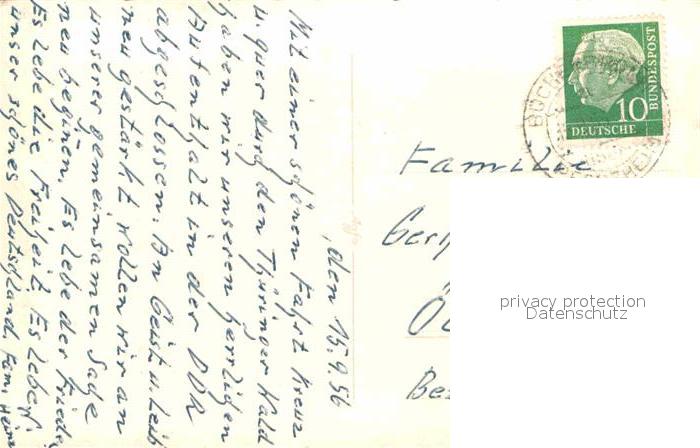 , den 15.9.56
Mit einer schönen Fahrt kreuz
u. quer durch den Thüringer Wald
haben wir unseren herrlichen
Aufenthalt in der DDR
abgeschlossen. An Geist u. Leib
neu gestärkt wollen wir an
unserer gemeinsamen Sache
neu beginen. Es lebe der Friede
Es lebe die Freiheit Es lebe
unser schönes Deutschland. Fam. Heim
10
DEUTSCHE
BUNDESPOST
Familie
Ger
Be
privacy protection
Datenschutz